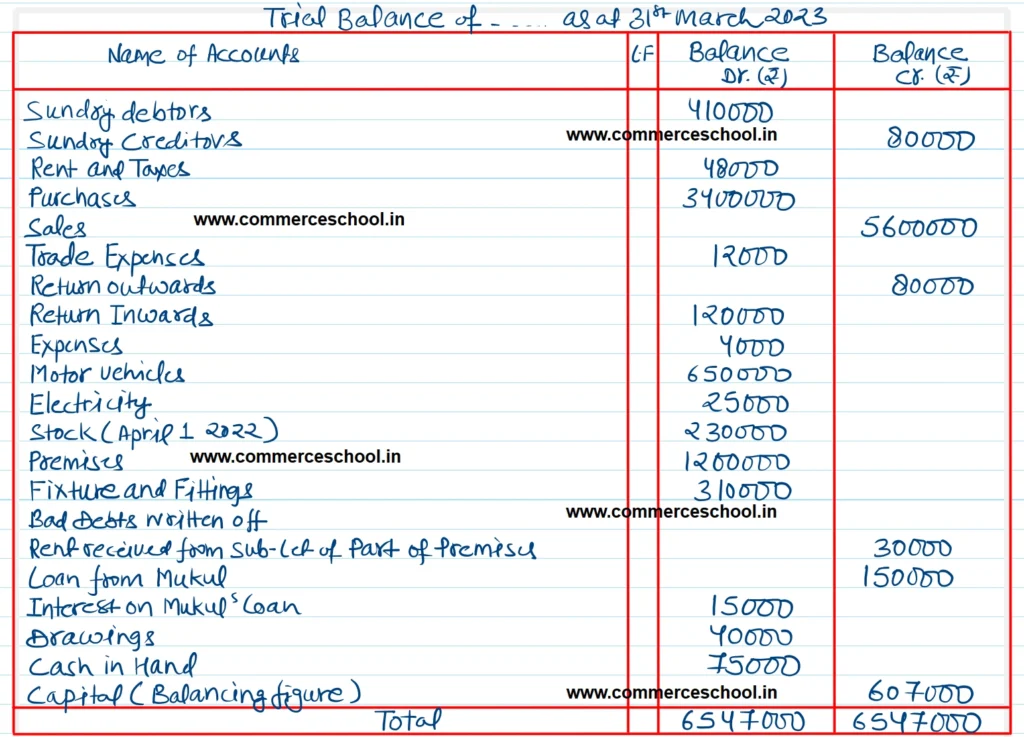 Trial Balance of - ..... as at 31st March 2023
Name of Accounts L.F Balance Dr. (₹) Balance Cr. (₹)
Sundry debtors 410000
www.commerceschool.in
Sundry Creditors 80000
Rent and Taxes 48000
Purchases 3400000
www.commerceschool.in
Sales 5600000
Trade Expenses 12000
Return outwards 80000
Return Inwards 120000
Expenses 4000
Motor vehicles 650000
Electricity 25000
Stock (April 1 2022) 230000
Premises www.commerceschool.in 1200000
Fixture and Fittings 310000
www.commerceschool.in
Bad Debts written off
Rent received from Sub-Let of Part of Premises 30000
Loan from Mukul 150000
Interest on Mukul's Loan 15000
Drawings 40000
Cash in Hand 75000
Capital (Balancing figure) www.commerceschool.in 607000
Total 6547000 6547000